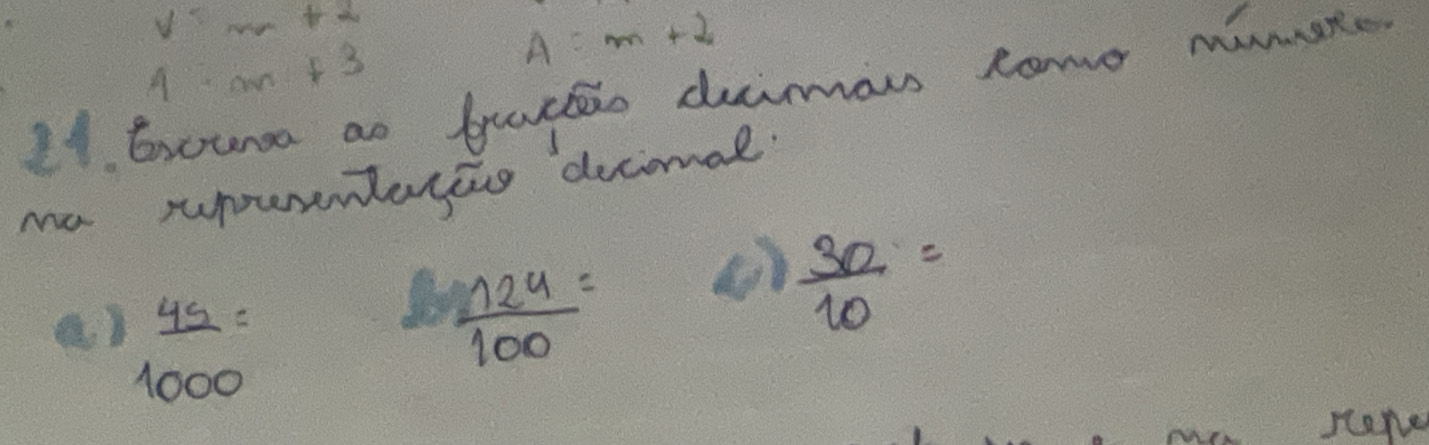 V = m + 2
A = m + 3
A = m + 2
21. Escreva as frações decimais como número
na representação decimal:
a) 45/1000 =
b) 124/100 =
c) 30/10 =
na repre